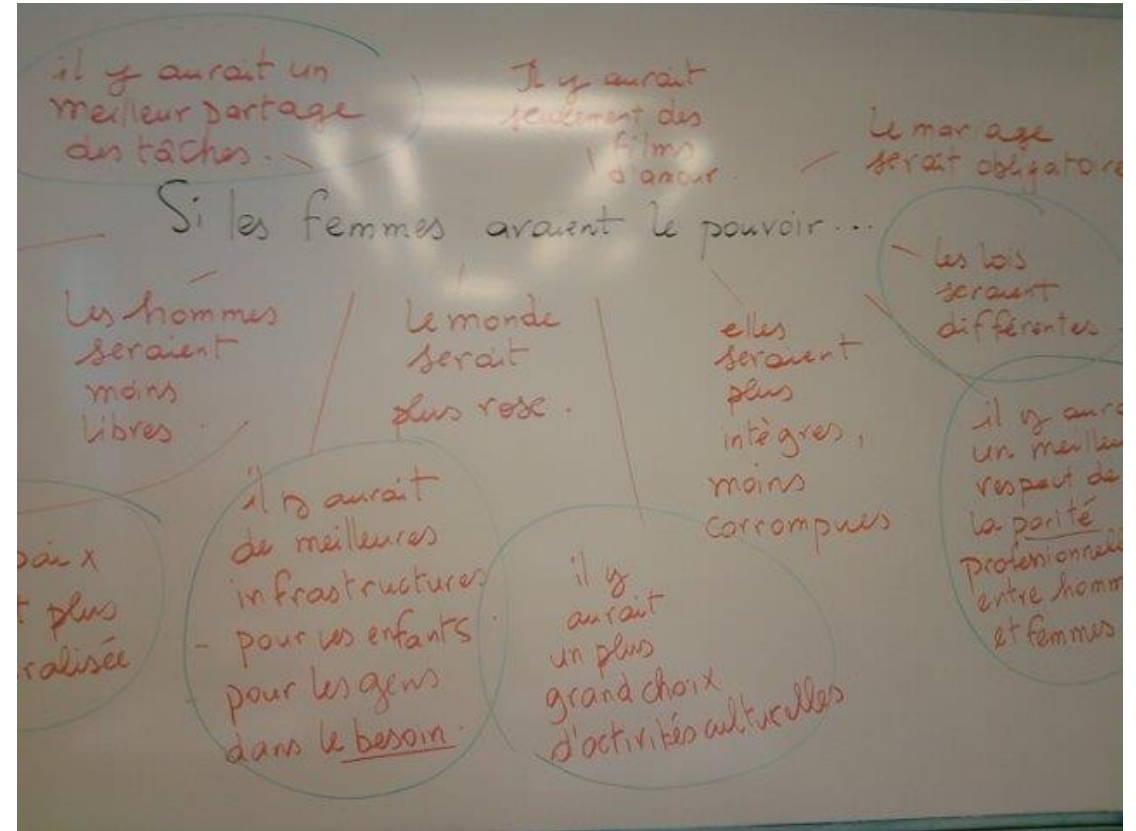 il y aurait un
meilleur partage
des tâches.
Il y aurait
seulement des
films
d'amour.
Le mariage
serait obligatoire
Si les femmes avaient le pouvoir...
les lois
seraient
différentes.
Les hommes
seraient
moins
libres.
Le monde
serait
plus rose.
elles
seraient
plus
intègres,
moins
corrompues
il y aura
un meilleu
respect de
la parité
professionnelle
entre homm
et femmes
paix
t plus
ralisée
il y aurait
de meilleures
infrastructures
- pour les enfants.
pour les gens
dans le besoin.
il y
aurait
un plus
grand choix
d'activités culturelles